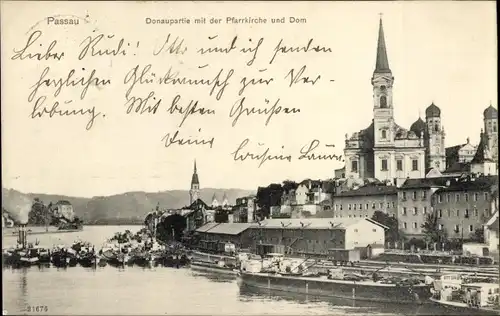 Passau
Donaupartie mit der Pfarrkirche und Dom
Lieber Rudi! Otto und ich senden
herzlichen Glückwunsch zur Ver-
lobung. Mit besten Grüßen
Deine
Cousine Laura.
31676